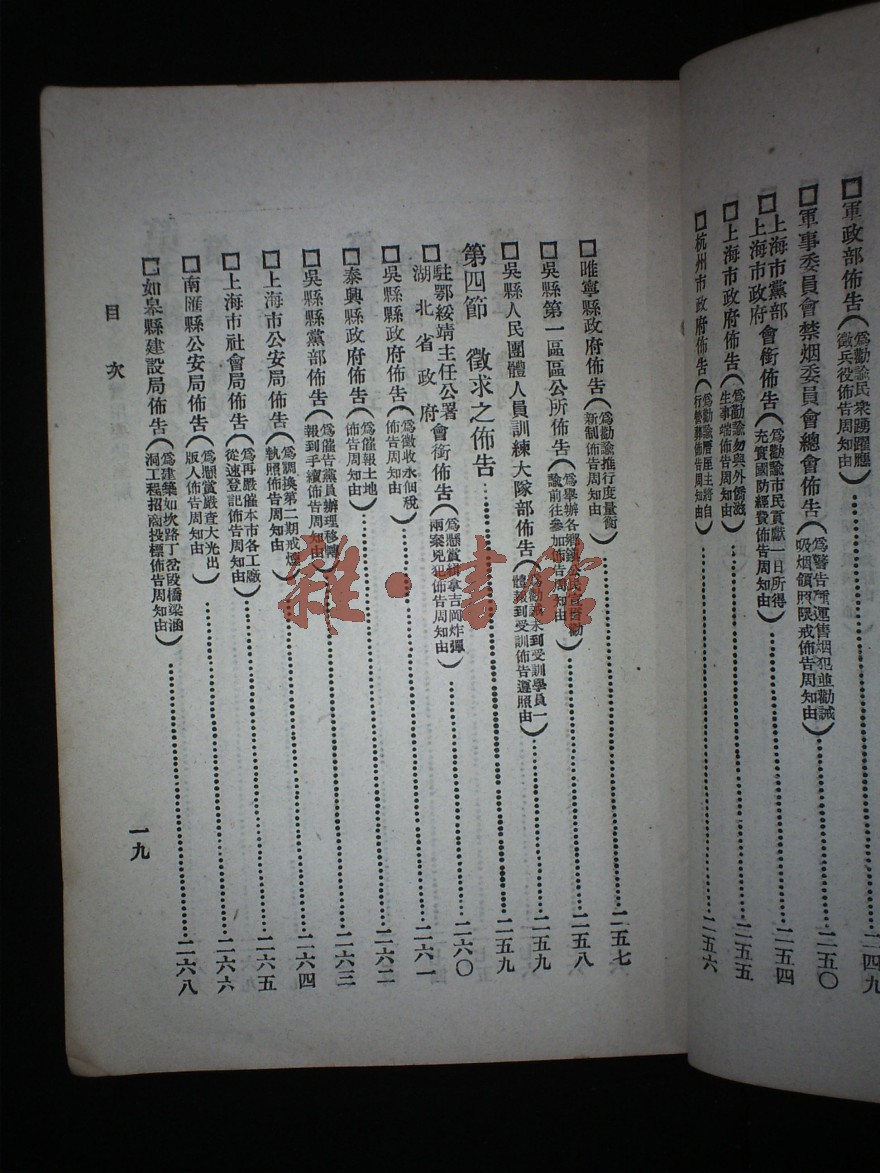 軍政部佈告(爲勸諭民衆踴躍應徵兵役佈告周知由)……二四九
軍事委員會禁烟委員會總會佈告(爲警告運售烟犯並勸誡吸烟領照限戒佈告周知由)……二五〇
上海市黨部上海市政府會銜佈告(爲勸諭市民貢獻一日所得充實國防經費佈告周知由)……二五四
上海市政府佈告(爲勸諭勿與外僑滋生事端佈告周知由)……二五五
杭州市政府佈告(爲勸諭厝主將自行營葬佈告周知由)……二五六
睢寧縣政府佈告(爲勸諭推行度量衡新制佈告周知由)……二五七
吳縣第一區區公所佈告(爲舉辦各鄉鎮公民宣誓勸諭前往參加佈告周知由)……二五八
吳縣人民團體人員訓練大隊部佈告(爲勸諭未到受訓學員一體報到受訓佈告遵照由)……二五九
第四節 徵求之佈告……二五九
駐鄂綏靖主任公署湖北省政府會銜佈告(爲懸賞緝拿吉岡炸彈兩案兇犯佈告周知由)……二六〇
吳縣縣政府佈告(爲徵收永佃稅佈告周知由)……二六一
泰興縣政府佈告(爲催報土地佈告周知由)……二六二
吳縣縣黨部佈告(爲催告黨員辦理移轉報到手續佈告周知由)……二六三
上海市公安局佈告(爲調換第二期戒煙執照佈告周知由)……二六四
上海市社會局佈告(爲再嚴催本市各工廠從速登記佈告周知由)……二六五
南匯縣公安局佈告(爲懸賞嚴查大光出版人佈告周知由)……二六六
如皋縣建設局佈告(爲建築如坎路丁岔段橋梁涵洞工程招商投標佈告周知由)……二六八
目 次
一九
雜·書館